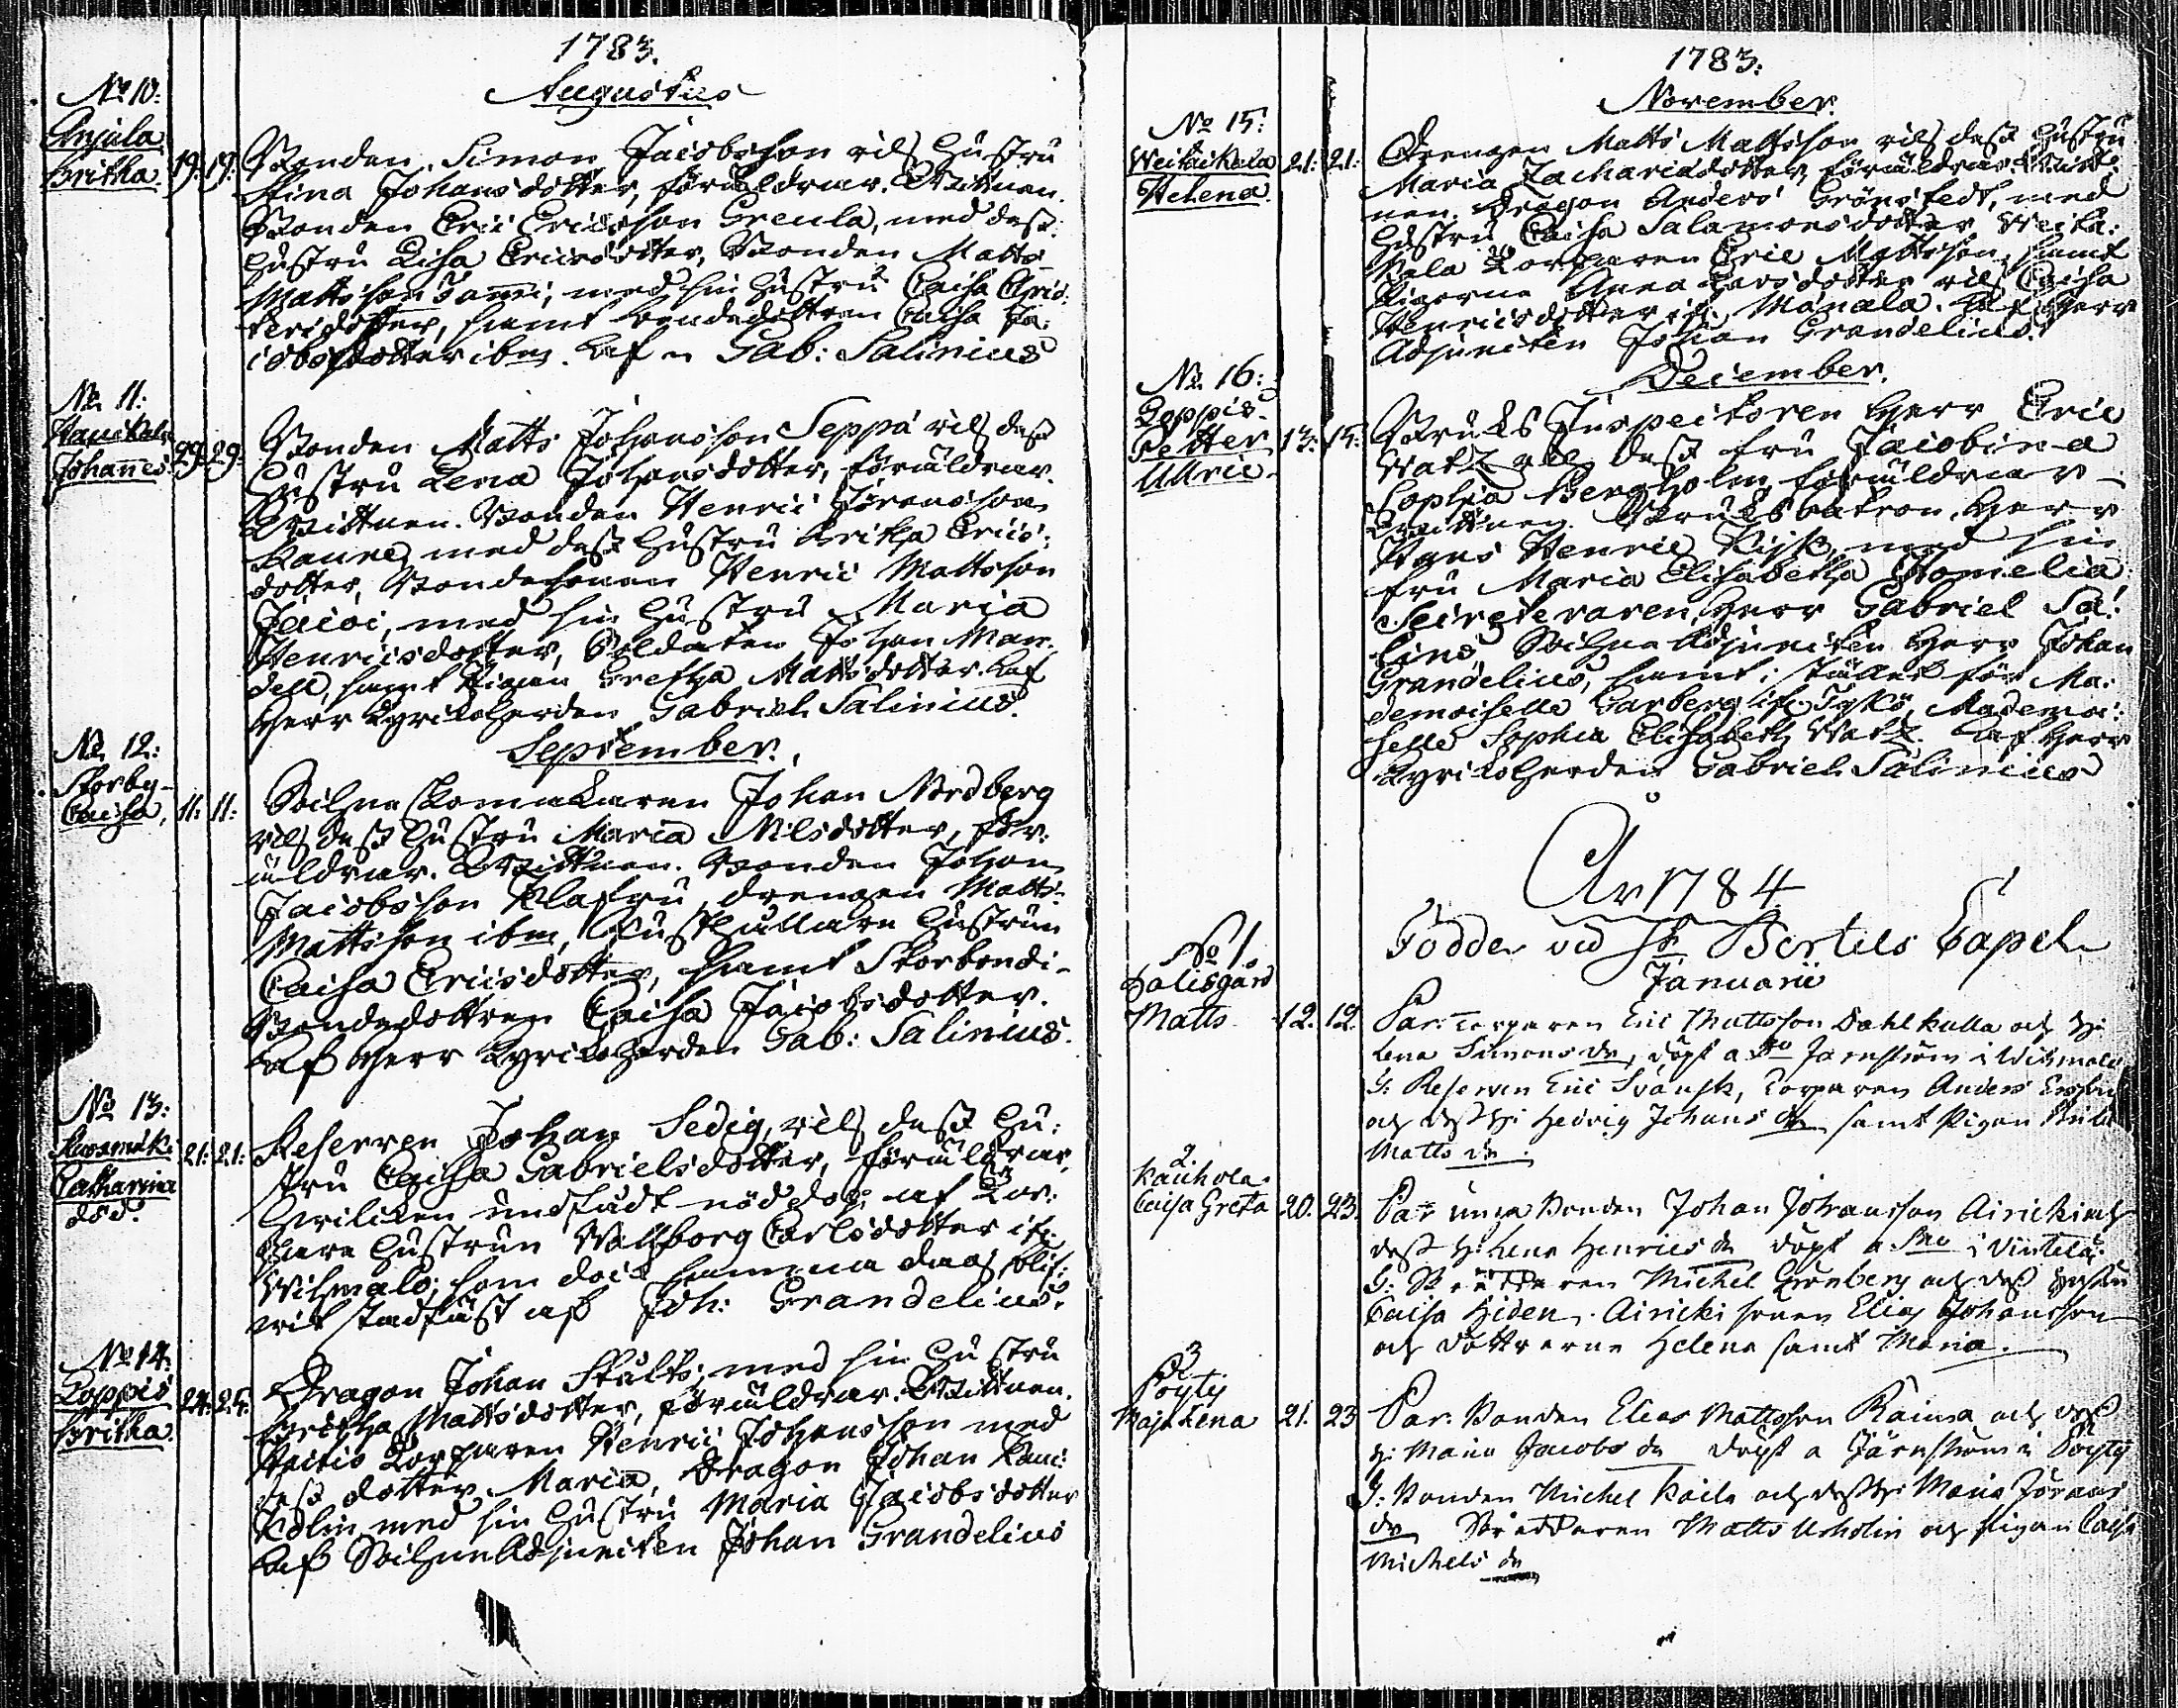 1783.
Augustus
No 10:
Anjala
Britha. 19: 19:
Bonden Simon Jacobsson och Hustru
Stina Johansdotter, föräldrar. Wittnen.
Bonden Eric Ericsson Grecula, med dess
Hustru Lisa Ericsdotter, Bonden Matts
Mattsson, med sin Hustru Caisa
dotter, samt bondedottren Caisa Ja:
cobsdotter ibm. af Gab: Salinius
No 11:
Johannes 29. 29:
Bonden Matts Johansson Seppä och dess
Hustru Lena Johansdotter, föräldrar.
Wittnen. Bonden Henric Jöransson
med dess Hustru Britha Erics:
dotter, Bondesonen Henric Mattsson
Jäcoi, med sin Hustru Maria
Henricsdotter, Soldaten Johan Man:
dell, samt Pigan Gretha Mattsdotter. af
Herr Kyrkoherden Gabriel Salinius.
September.
No 12:
Storby
Caisa, 11: 11:
Sockne Skomakaren Johan Nordberg
och dess Hustru Maria Nilsdotter, för:
äldrar. Wittnen. Bonden Johan
Jacobsson Klasru, drengen Matts
Mattsson ibm, Hustrun
Caisa Ericsdotter, samt Storbondi
Bondedottren Caisa Jacobsdotter.
af Herr Kyrkoherden Gab: Salinius.
No 13:
Catharina
död. 21: 21:
Reserven Johan Sedig, och dess Hu:
stru Caisa Gabrielsdotter, föräldrar,
undfådt nöddop af Tor:
pare Hustrun Wallborg Carlsdotter
Wihmalo, som doch hemma
stadfäst af Joh: Grandelius.
No 14:
Koppis
Britha. 24: 25:
Dragon Johan Stålts, med sin Hustru
Britha Mattsdotter, föräldrar. Wittnen.
Torparen Henric Johansson med
dess dotter Maria, Dragon Johan
med sin Hustru Maria Jacobsdotter
af Sockne Adjuncten Johan Grandelius
1783:
November.
No 15:
Helena. 21: 21:
Drengen Matts Mattsson och dess Hustru
Maria Zachariædotter, föräldrar. Witt:
nen. Dragon Anders Grönstedt, med
Hustru Caisa Salamonsdotter
Torparen Eric Mattsson, samt
Pigorna Anna Larsdotter och Caisa
Henricsdotter Manala. af Herr
Adjuncten Johan Grandelius.
December.
No 16:
Koppis
Petter
Ulric 13: 15:
Bruks Inspectoren Herr Eric
Watz och dess fru Jacobina
Sophia Bergholm, föräldrar
Wittnen. Brukspatron Herr
Hans Henric med sin
fru Maria Elisabetha
Secreteraren Herr Gabriel Sa:
Sockne Adjuncten Herr Johan
Grandelius, samt i stället för Ma:
demoiselle Tyskö, Mademoi:
selle Sophia Elisabeth Watz. af Herr
Kyrkoherden Gabriel Salinius
År 1784
Födde vid St Bertils Capel
Januarii
No 1.
Dalisgård
Matts 12. 12.
Par: Torparen Eric Mattsson Dahlkulla och H:
Lena Simons dr, döpt a Järnström i Wihmalo
G: Reserven Eric Svänsk, Torparen Anders
och dess H: Hedvig Johans dr samt Pigan
Matts dr
2.
Kauhola
Caisa Greta 20. 23.
Par unga Bonden Johan Johansson Airicki och
dess H: Lena Henrics dr döpt a i Vintelä
G: Michel Grönberg och dess Hustru
Caisa Hiden. Airicki sonen Elias Johansson
och döttrarne Helena samt Maria.
3
Pöyty
Maja Lena 21. 23
Par: Bonden Elias Mattsson Raima och dess
H: Maria Jacobs dr döpt a Järnström i Pöyty
G: Bonden Michel Kaila och dess H: Maria Jörans
dr Matts Usholin och pigan Caisa
Michels dr